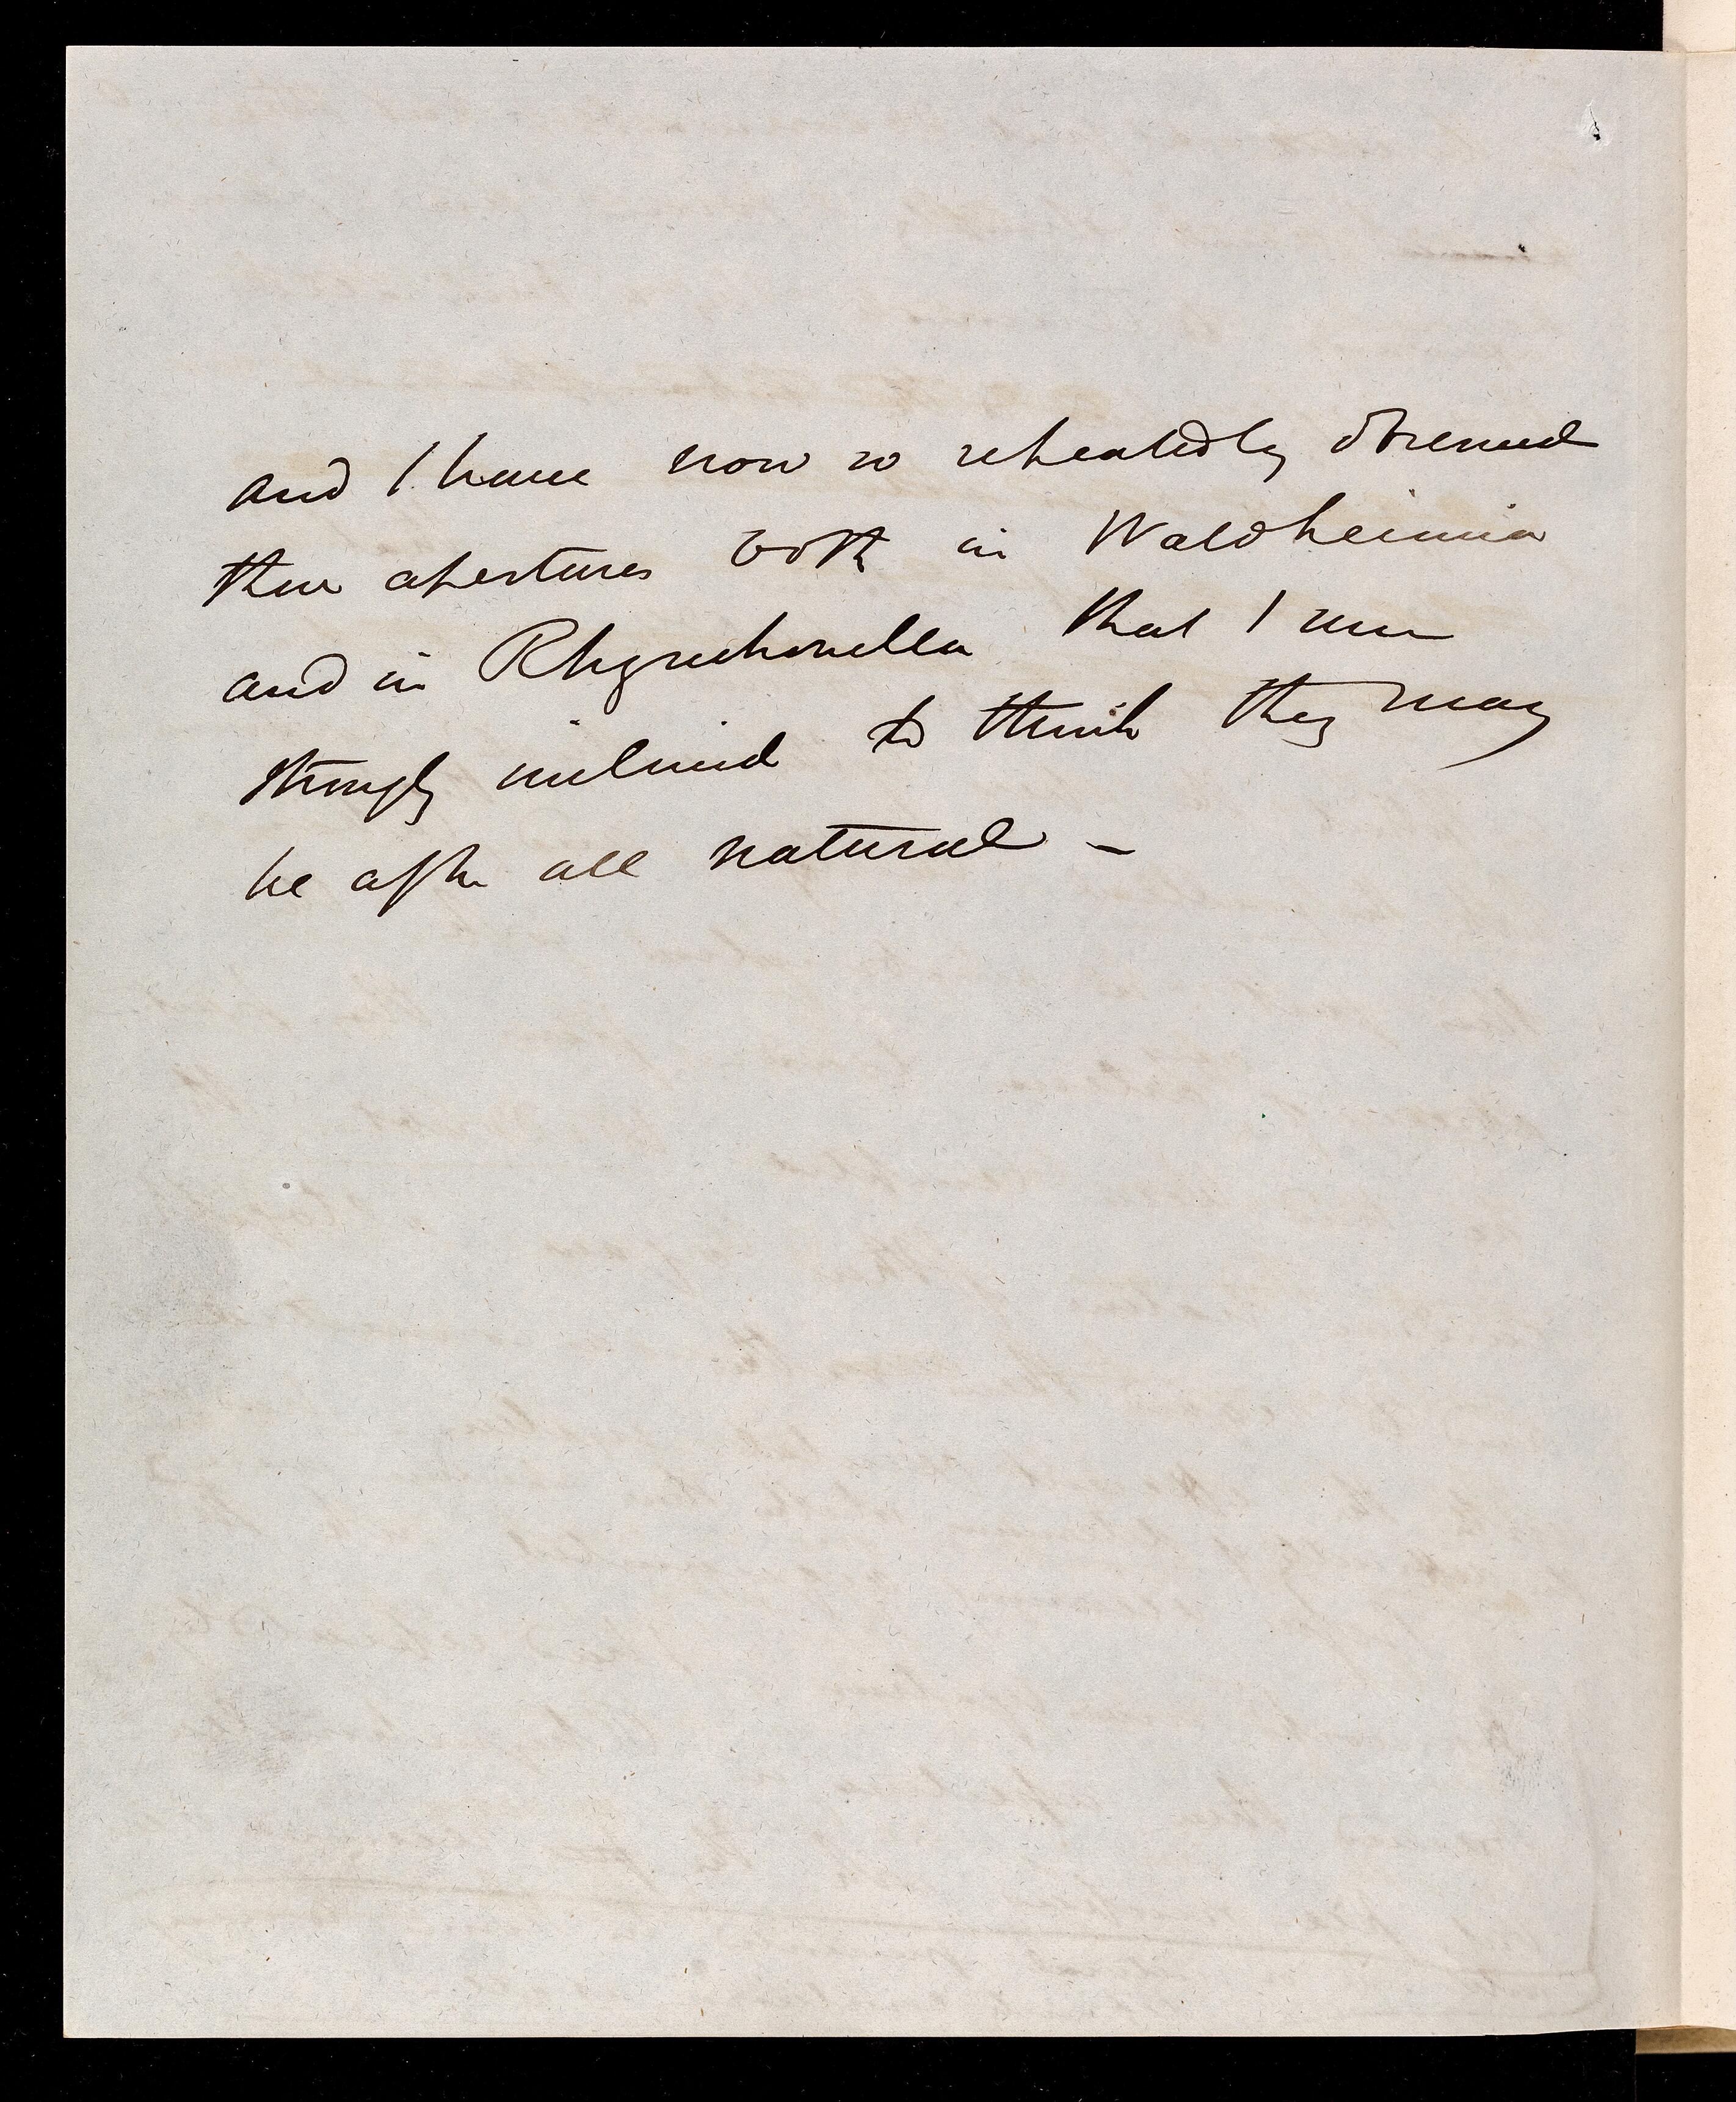 and I have now so repeatedly observed
these apertures both in Waldheimia
and in Rhynchonella that I am
strongly inclined to think they may
be after all natural –